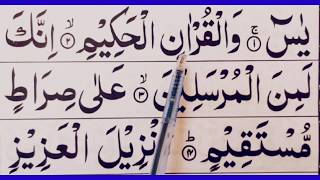 يٰسٓ ۚ﴿۱﴾ وَالْقُرْاٰنِ الْحَكِيْمِ ۙ﴿۲﴾ اِنَّكَ
لَمِنَ الْمُرْسَلِيْنَ ۙ﴿۳﴾ عَلٰى صِرَاطٍ
مُّسْتَقِيْمٍ ؕ﴿۴﴾ تَنْزِيْلَ الْعَزِيْزِ